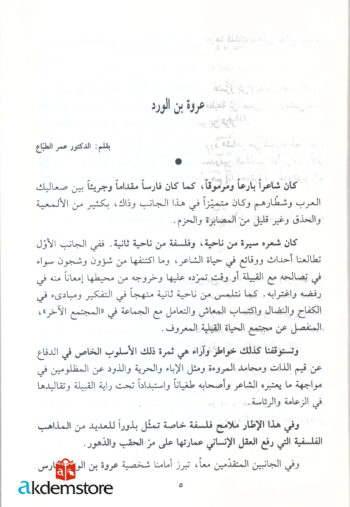 عروة بن الورد
بقلم: الدكتور عمر الطبّاع
كان شاعراً بارعاً ومرموقاً، كما كان فارساً مقداماً وجريئاً بين صعاليك
العرب وشطّارهم وكان متميّزاً في هذا الجانب وذاك، بكثير من الألمعية
والحذق وغير قليل من المصابرة والحزم.
كان شعره سيرة من ناحية، وفلسفة من ناحية ثانية. ففي الجانب الأوّل
تطالعنا أحداث ووقائع في حياة الشاعر، وما اكتنفها من شؤون وشجون سواء
في تصالحه مع القبيلة أو وقت تمرّده عليها وخروجه من محيطها إمعاناً منه في
رفضه واغترابه. كما نتلمس من ناحية ثانية منهجاً في التفكير ومبادىء في
الكفاح والنضال واكتساب المعاش والتعامل مع الجماعة في «المجتمع الآخر»،
المنفصل عن مجتمع الحياة القبلية المعروف.
وتستوقفنا كذلك خواطر وآراء هي ثمرة ذلك الأسلوب الخاص في الدفاع
عن قيم الذات ومحامد المروءة مثل الإباء والحرية والذود عن المظلومين في
مواجهة ما يعتبره الشاعر وأصحابه طغياناً واستبداداً تحت راية القبيلة وتقاليدها
في الزعامة والرئاسة.
وفي هذا الإطار ملامح فلسفة خاصة تمثّل بذوراً للعديد من المذاهب
الفلسفية التي رفع العقل الإنساني عمارتها على مرّ الحقب والدهور.
وفي الجانبين المتقدّمين معاً، تبرز أمامنا شخصية عروة بن الورد فارس
٥
akdemstore